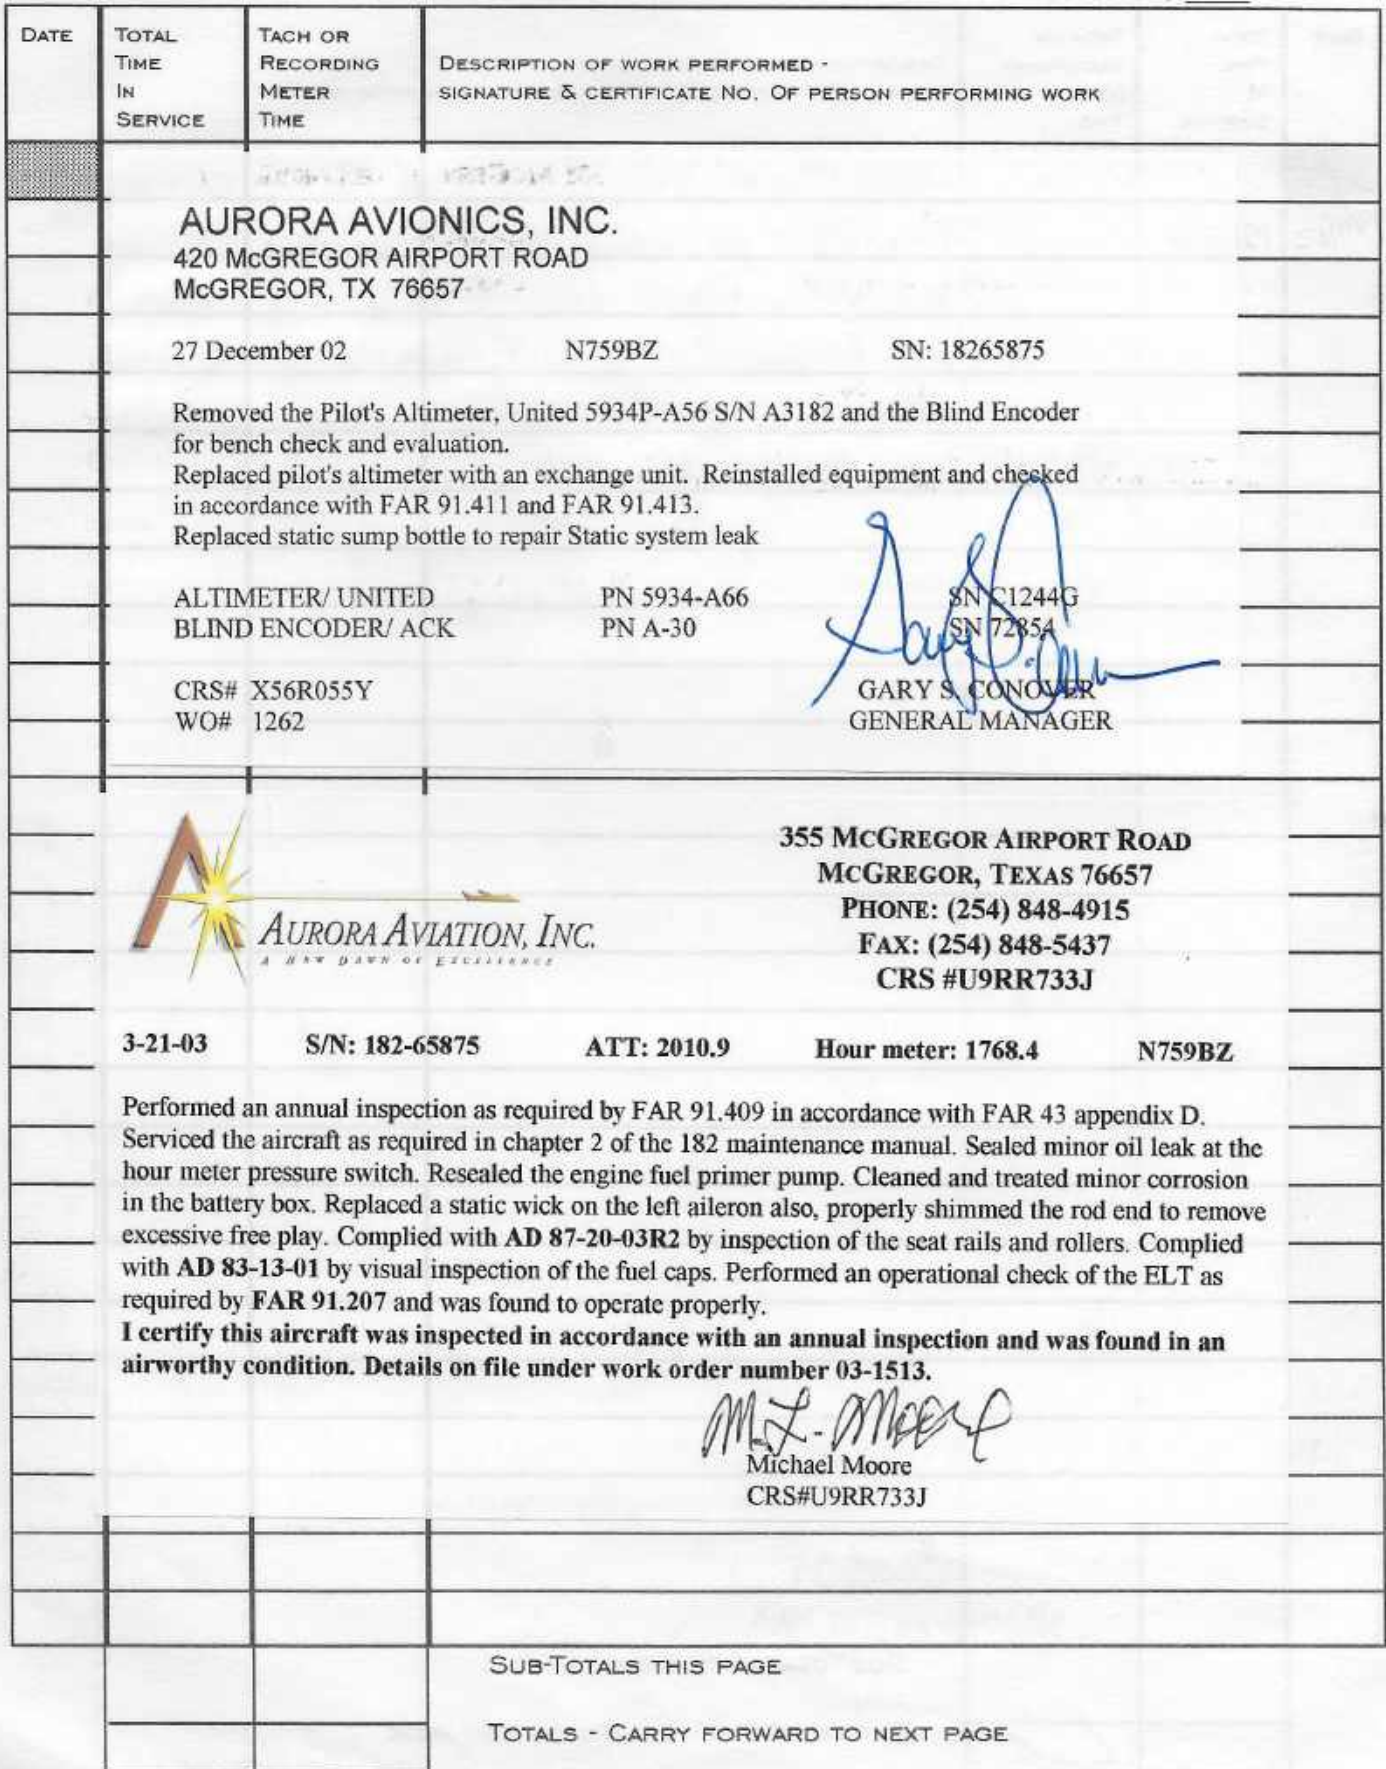 DATE
TOTAL TIME IN SERVICE
TACH OR RECORDING METER TIME
DESCRIPTION OF WORK PERFORMED -
SIGNATURE & CERTIFICATE NO. OF PERSON PERFORMING WORK
AURORA AVIONICS, INC.
420 McGREGOR AIRPORT ROAD
McGREGOR, TX 76657
27 December 02 N759BZ SN: 18265875
Removed the Pilot's Altimeter, United 5934P-A56 S/N A3182 and the Blind Encoder
for bench check and evaluation.
Replaced pilot's altimeter with an exchange unit. Reinstalled equipment and checked
in accordance with FAR 91.411 and FAR 91.413.
Replaced static sump bottle to repair Static system leak
ALTIMETER/ UNITED PN 5934-A66 SN C1244G
BLIND ENCODER/ ACK PN A-30 SN 72854
CRS# X56R055Y GARY S. CONOVER
WO# 1262 GENERAL MANAGER
355 MCGREGOR AIRPORT ROAD
MCGREGOR, TEXAS 76657
PHONE: (254) 848-4915
FAX: (254) 848-5437
CRS #U9RR733J
AURORA AVIATION, INC.
A NEW DAWN OF EXCELLENCE
3-21-03 S/N: 182-65875 ATT: 2010.9 Hour meter: 1768.4 N759BZ
Performed an annual inspection as required by FAR 91.409 in accordance with FAR 43 appendix D.
Serviced the aircraft as required in chapter 2 of the 182 maintenance manual. Sealed minor oil leak at the
hour meter pressure switch. Resealed the engine fuel primer pump. Cleaned and treated minor corrosion
in the battery box. Replaced a static wick on the left aileron also, properly shimmed the rod end to remove
excessive free play. Complied with AD 87-20-03R2 by inspection of the seat rails and rollers. Complied
with AD 83-13-01 by visual inspection of the fuel caps. Performed an operational check of the ELT as
required by FAR 91.207 and was found to operate properly.
I certify this aircraft was inspected in accordance with an annual inspection and was found in an
airworthy condition. Details on file under work order number 03-1513.
M. L. Moore
Michael Moore
CRS#U9RR733J
SUB-TOTALS THIS PAGE
TOTALS - CARRY FORWARD TO NEXT PAGE